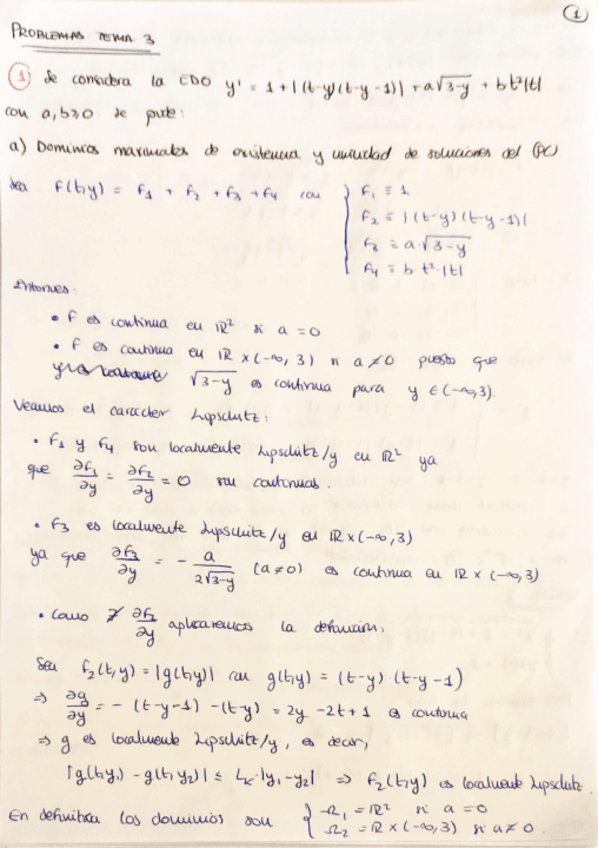 1
PROBLEMAS TEMA 3
1 Se considera la EDO y' = 1 + |(t-y)(t-y-1)| + a√(3-y) + b t²|t|
con a, b≥0 se pide:
a) Dominios maximales de existencia y unicidad de soluciones del (PC)
Sea f(t,y) = f₁ + f₂ + f₃ + f₄ con { f₁ ≡ 1
f₂ ≡ |(t-y)(t-y-1)|
f₃ ≡ a·√(3-y)
f₄ ≡ b·t²·|t|
Entonces:
• f es continua en ℝ² si a = 0
• f es continua en ℝ × (-∞, 3) si a ≠ 0 puesto que
√(3-y) es continua para y ∈ (-∞,3).
Veamos el carácter Lipschitz:
• f₁ y f₄ son localmente Lipschitz/y en ℝ² ya
que ∂f₁/∂y = ∂f₂/∂y = 0 son continuas.
• f₃ es localmente Lipschitz/y en ℝ × (-∞, 3)
ya que ∂f₃/∂y = - a/(2√(3-y)) (a≠0) es continua en ℝ × (-∞, 3)
• Como ∄ ∂f₂/∂y aplicaremos la definición.
Sea f₂(t,y) = |g(t,y)| con g(t,y) = (t-y)·(t-y-1)
⇒ ∂g/∂y = - (t-y-1) - (t-y) = 2y - 2t + 1 es continua
⇒ g es localmente Lipschitz/y, es decir,
|g(t,y₁) - g(t,y₂)| ≤ L_K·|y₁-y₂| ⇒ f₂(t,y) es localmente Lipschitz.
En definitiva los dominios son { Ω₁ = ℝ² si a = 0
Ω₂ = ℝ × (-∞, 3) si a≠0.